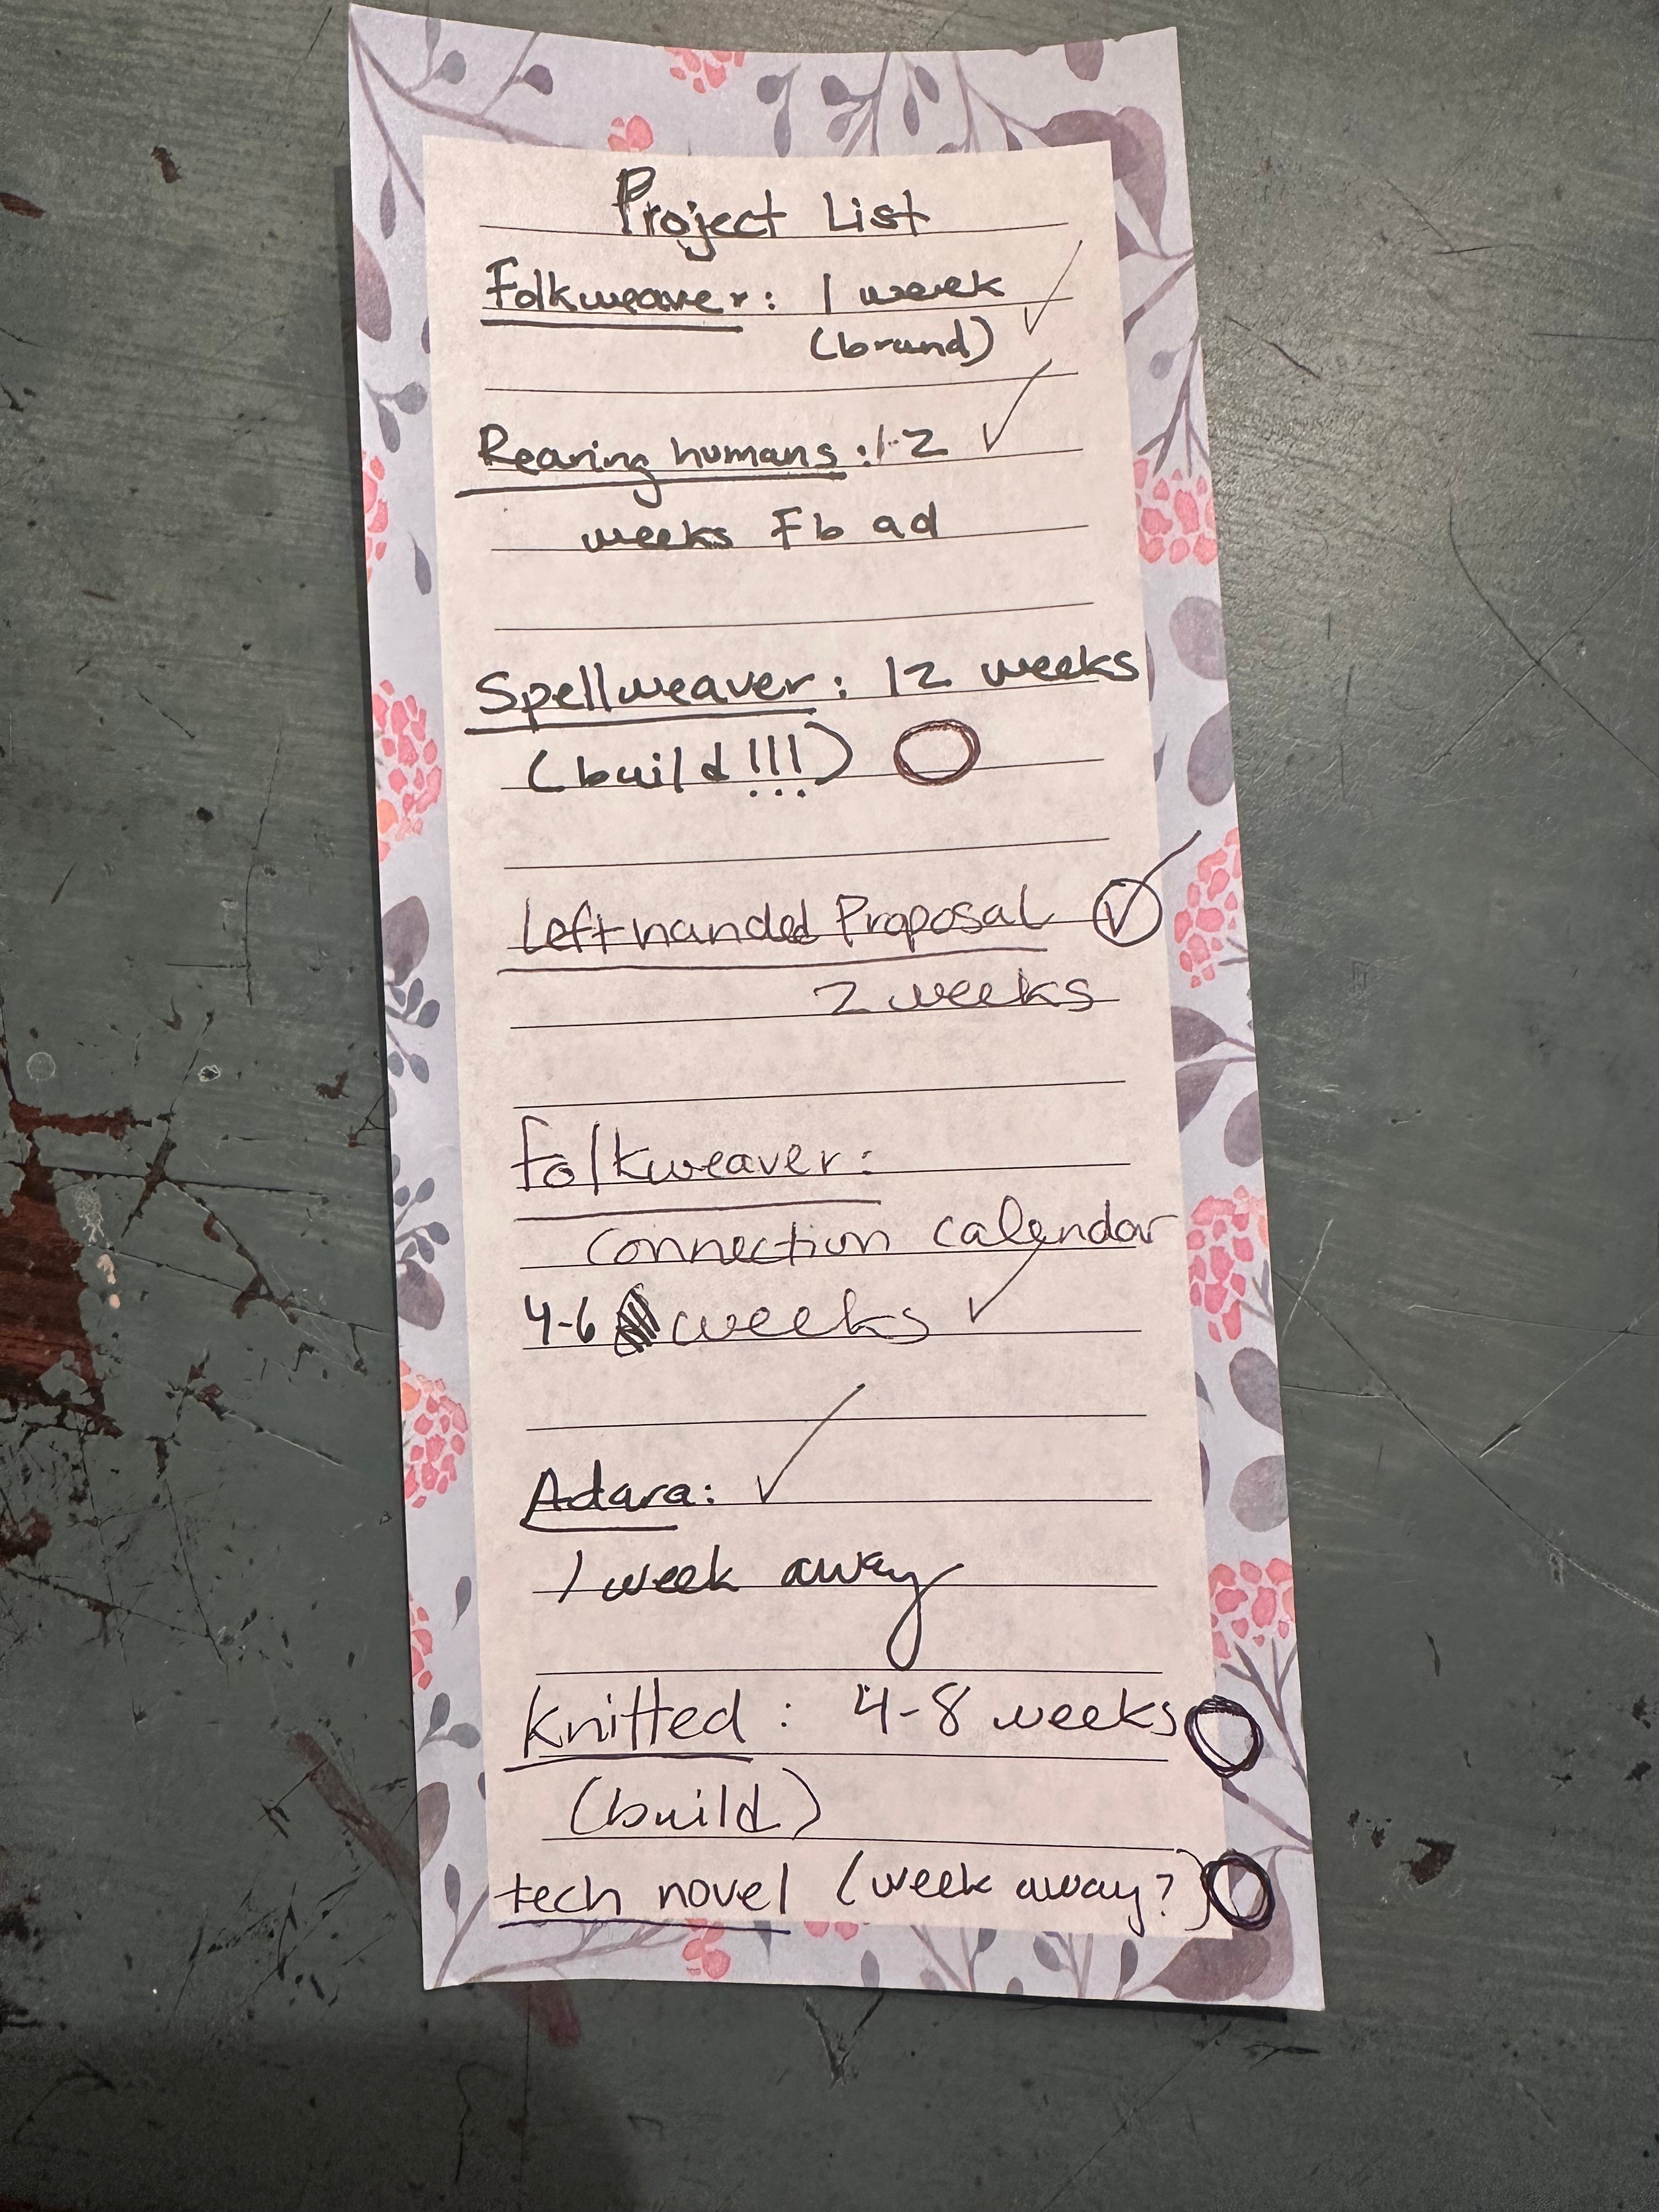 Project List
Folkweaver: 1 week ✓
(brand)
Rearing humans: 1-2 ✓
weeks Fb ad
Spellweaver: 12 weeks
(build!!!) ◯
Lefthanded Proposal ✓
2 weeks
Folkweaver:
Connection calendar
4-6 weeks ✓
Adara: ✓
1 week away
Knitted: 4-8 weeks ◯
(build)
tech novel (week away?) ◯